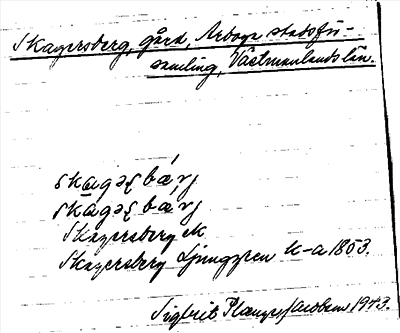 Skagersberg, gård, Arboga stadsför-
samling, Västmanlands län.
skagəʂbárj
skàgəʂbárj
Skagersberg K
Skagersberg Ljunggren k-a 1853.
Sigbrit Plænge Jacobson 1943.